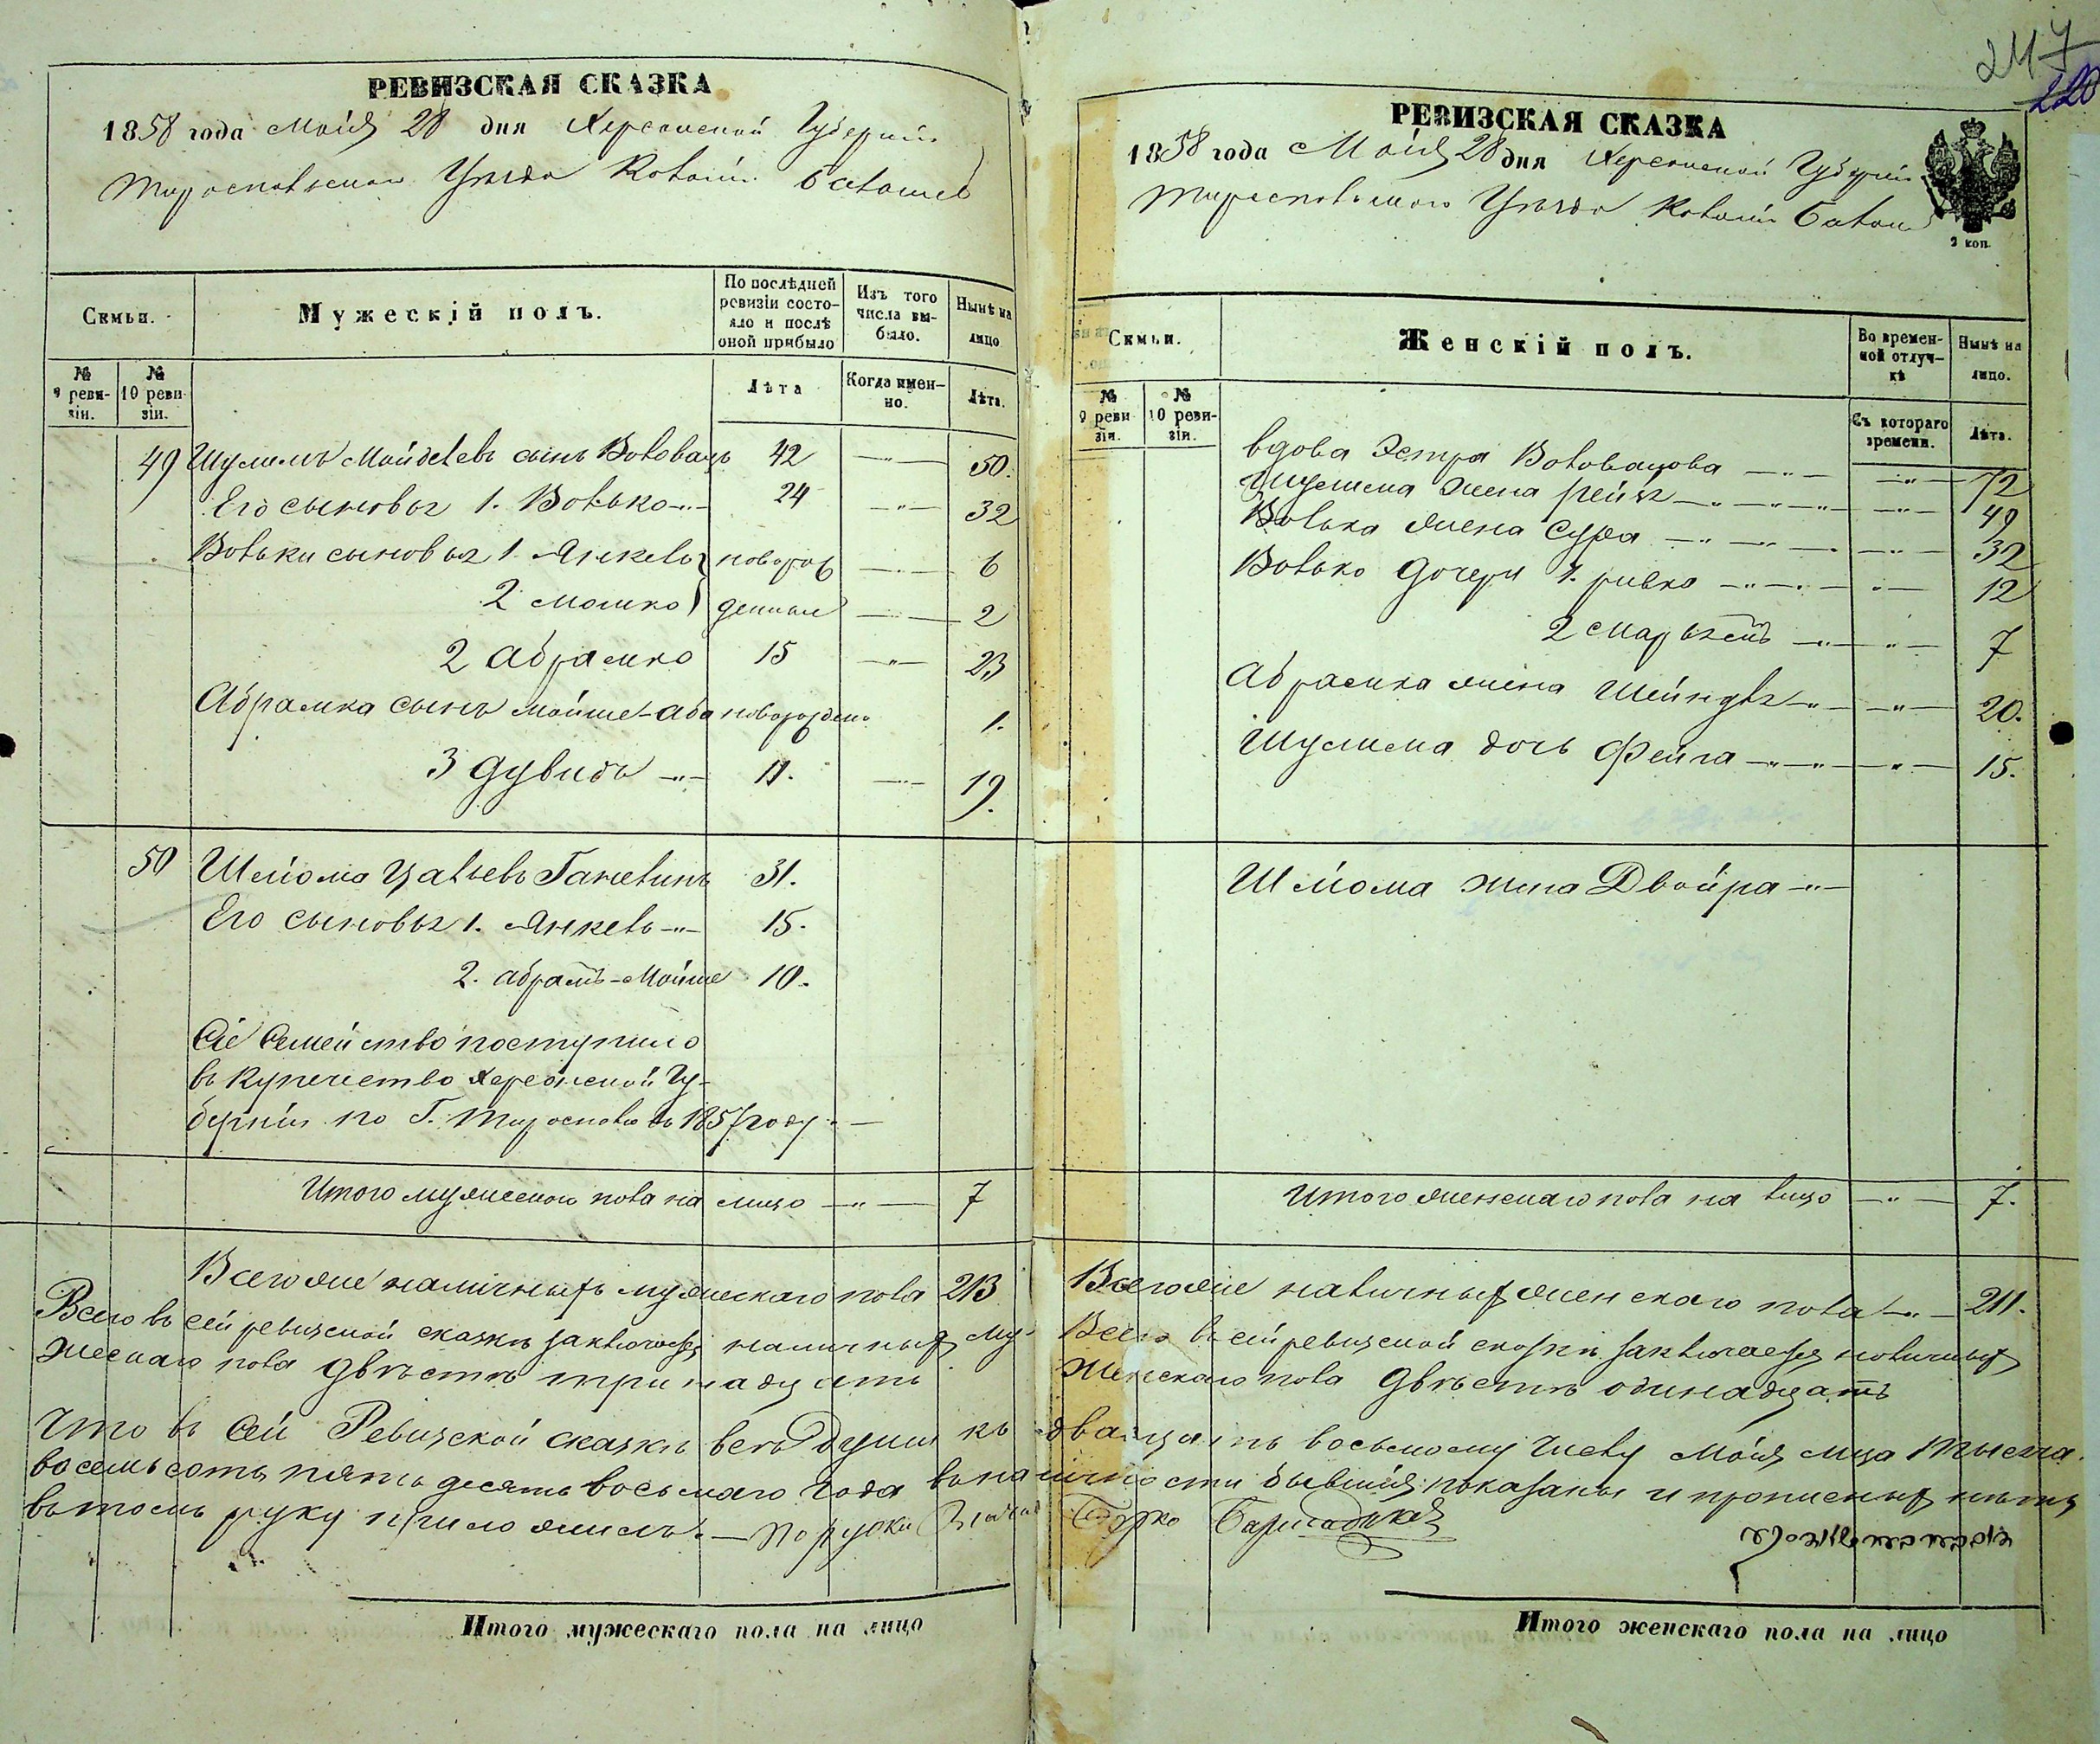 РЕВИЗСКАЯ СКАЗКА
1858 года Маія 28 дня Херсонской Губерніи
Тираспольскаго Уѣзда Колоніи
Семьи.
Мужескій полъ.
По послѣдней ревизіи состояло и послѣ оной прибыло
Изъ того числа выбыло.
Нынѣ на лицо
№ 9 ревизіи.
№ 10 ревизіи.
Лѣта
Когда именно.
Лѣта.
49 Шулимъ сынъ 42 —"— 50.
Его сыновья 1. Волько —"— 24 —"— 32
Вольки сыновья 1. Янкель новорож —"— 6
2 Мошко денные —"— 2
2 Абрамко 15 —"— 23
Абрамка сынъ Мойше-Аба новорожден. 1.
3 Дувидъ —"— 11. —"— 19.
50 Шліома 31.
Его сыновья 1. Янкель —"— 15.
2. Абрамъ-Мойше 10.
Сіе Семейство поступило
въ Купечество Херсонской Гу-
берніи по Г. Тирасполю въ 1857 году. —
Итого мужескаго пола на лицо —"— 7
Всего же наличныхъ мужескаго пола 213
Всего въ сей ревизской сказкѣ заключается наличныхъ му-
жескаго пола двѣсти тринадцать
РЕВИЗСКАЯ СКАЗКА
1858 года Маія 28 дня Херсонской Губерніи
Тираспольскаго Уѣзда Колоніи
2 коп.
247
220
Семьи.
Женскій полъ.
Во временной отлучкѣ
Нынѣ на лицо.
№ 9 ревизіи.
№ 10 ревизіи.
Съ котораго времени.
Лѣта.
вдова Эстра —"— —"— 72
Шулима жена Рейзя —"—"—"— —"— 49
Волька жена Сура —"—"— —"— 32
Волько дочери 1. Ривка —"—"— "— 12
2 —"— "— 7
Абрамка жена Шейндля —"— —"— 20.
Шулима дочь Фейга —"—"— "— 15.
Шліома жена Двойра —"—
Итого женскаго пола на лицо —"— 7.
Всего же наличныхъ женскаго пола —"— 211.
Всего въ сей ревизской сказкѣ заключается наличныхъ
Женскаго пола двѣсти одинадцать
Что въ сей Ревизской сказкѣ всѣ Души къ двадцать восьмому числу Маія мца 1 тысяча
восемьсотъ пятьдесятъ восьмаго года въ наличности бывшія показаны и прописныхъ нѣтъ
въ томъ руку приложилъ. —
Итого мужескаго пола на лицо
Итого женскаго пола на лицо